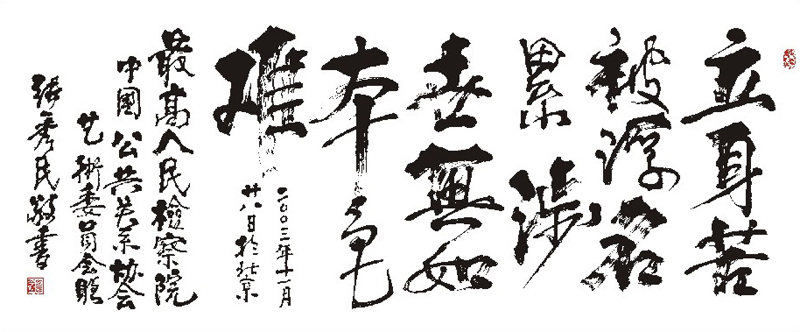 立身苦
被浮名
累涉
世無如
本色
難
二〇〇三年十一月
廿八日於北京
最高人民檢察院
中國公共关系协会
艺術委員会
張秀民敬書